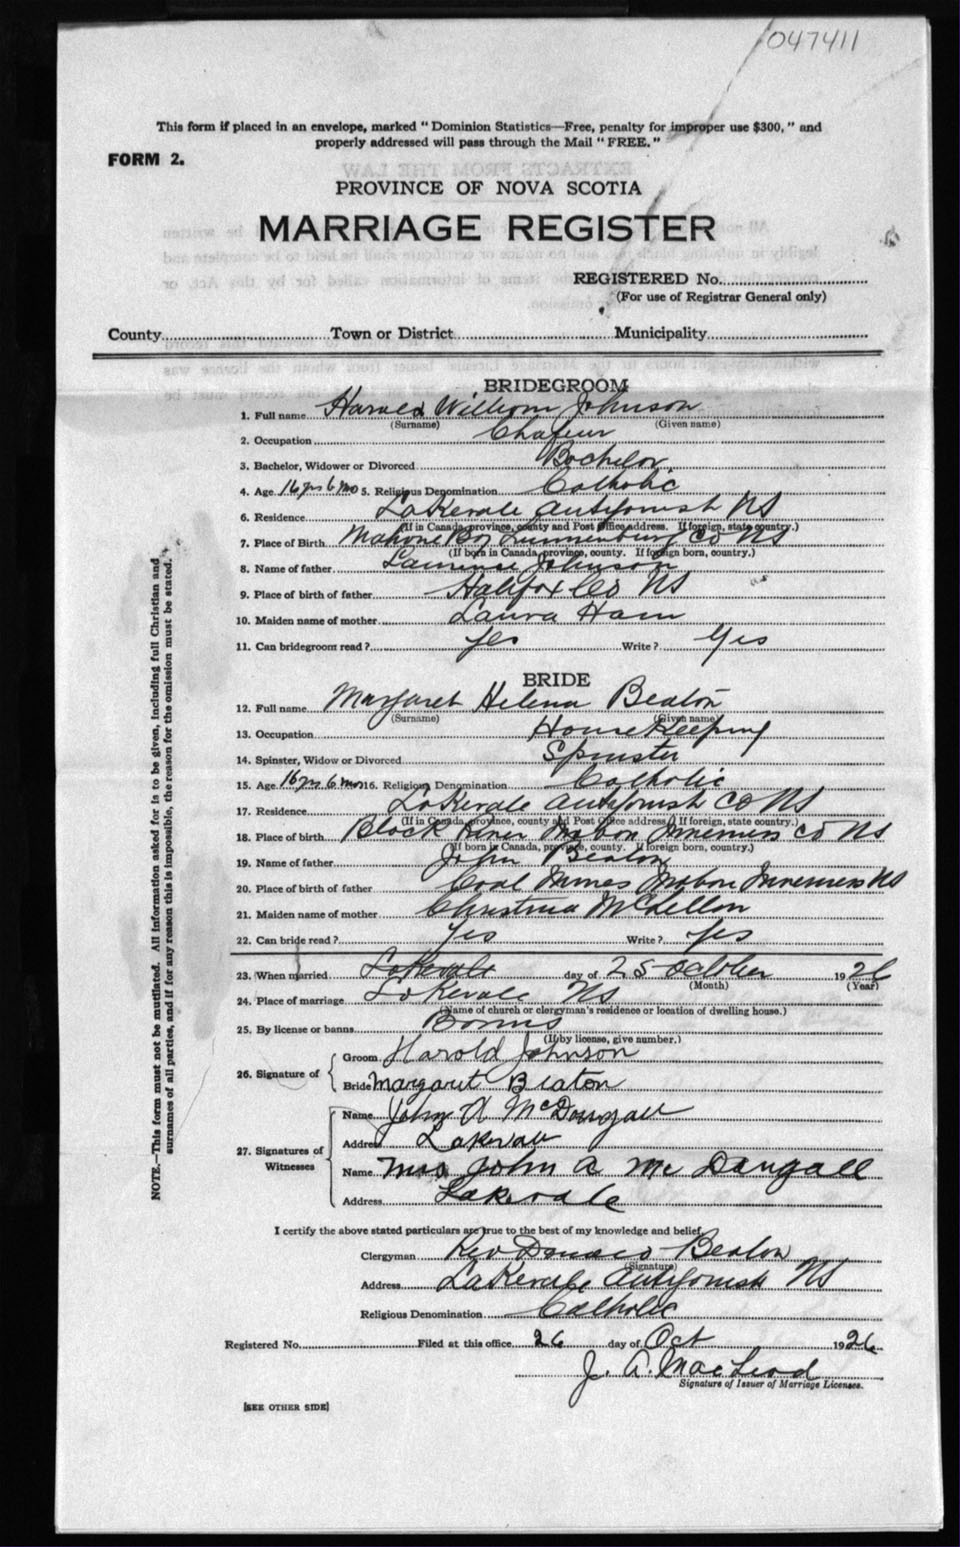 047411
This form if placed in an envelope, marked "Dominion Statistics—Free, penalty for improper use $300," and
properly addressed will pass through the Mail "FREE."
FORM 2.
PROVINCE OF NOVA SCOTIA
MARRIAGE REGISTER
REGISTERED No.
(For use of Registrar General only)
County Town or District Municipality
BRIDEGROOM
1. Full name Harold William Johnson
(Surname) (Given name)
2. Occupation Chafeur
3. Bachelor, Widower or Divorced Bachelor
4. Age 16 yrs 6 mo 5. Religious Denomination Catholic
6. Residence Lakevale Antigonish NS
(If in Canada, province, county and Post Office address. If foreign, state country.)
7. Place of Birth Mahone Bay Lunnenburg Co NS
(If born in Canada, province, county. If foreign born, country.)
8. Name of father Laurence Johnson
9. Place of birth of father Halifax Co NS
10. Maiden name of mother Laura Ham
11. Can bridegroom read? Yes Write? Yes
BRIDE
12. Full name Margaret Helena Beaton
(Surname) (Given name)
13. Occupation HouseKeeping
14. Spinster, Widow or Divorced Spinster
15. Age 16 yrs 6 mos 16. Religious Denomination Catholic
17. Residence Lakevale Antigonish Co NS
(If in Canada, province, county and Post Office address. If foreign, state country.)
18. Place of birth Black River Mabou Inverness Co NS
(If born in Canada, province, county. If foreign born, country.)
19. Name of father John Beaton
20. Place of birth of father Coal Mines Mabou Inverness NS
21. Maiden name of mother Christina McLellan
22. Can bride read? Yes Write? Yes
23. When married Lakevale day of 25 October 1926
(Month) (Year)
24. Place of marriage Lakevale NS
(Name of church or clergyman's residence or location of dwelling house.)
25. By license or banns Banns
(If by license, give number.)
26. Signature of Groom Harold Johnson
Bride Margaret Beaton
27. Signatures of Witnesses Name John A McDougall
Address Lakevale
Name Mrs John A McDougall
Address Lakevale
I certify the above stated particulars are true to the best of my knowledge and belief.
Clergyman Rev Donald Beaton
(Signature)
Address Lakevale Antigonish NS
Religious Denomination Catholic
Registered No. Filed at this office 26 day of Oct 1926
J. A. MacLeod
Signature of Issuer of Marriage Licenses.
[SEE OTHER SIDE]
NOTE.—This form must not be mutilated. All information asked for is to be given, including full Christian and
surnames of all parties, and if for any reason this is impossible, the reason for the omission must be stated.